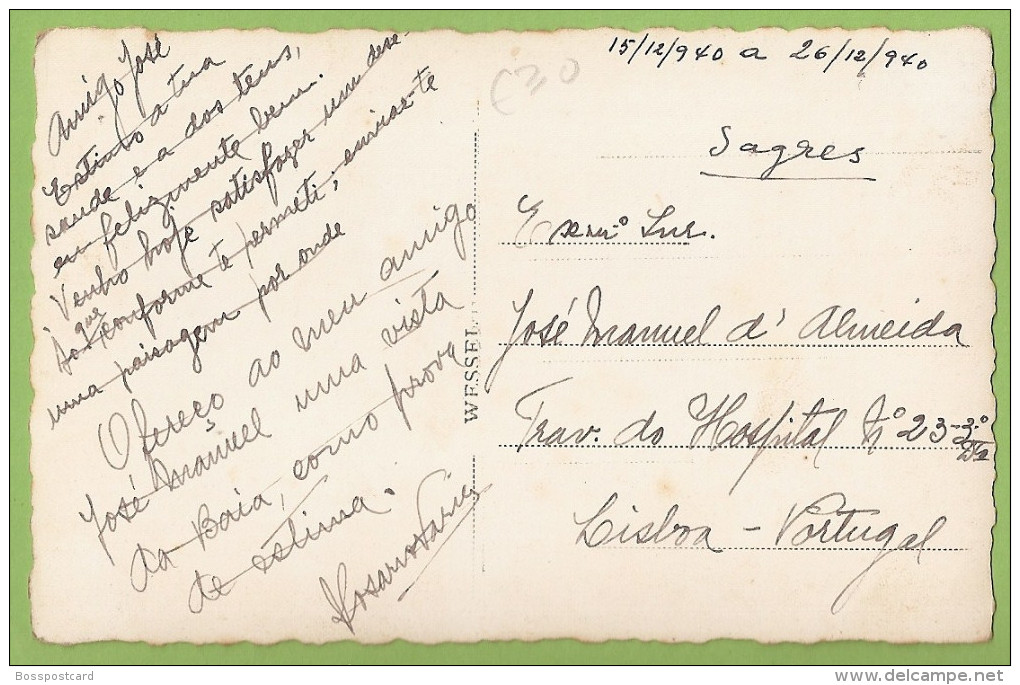 Amigo José
Estimo a tua
saude e a dos teus,
eu felizmente bem.
Venho hoje satisfazer um dese-
jo que conforme te permeti, enviar-te
uma paisagem por onde
Ofereço ao meu amigo
José Manuel uma vista
da Baia, como prova
de estima.
WESSEL
15/12/940 a 26/12/940
£30
Sagres
Exmº Snr.
José Manuel d' Almeida
Trav. do Hospital Nº 23-3º
Dtº
Lisboa - Portugal
Bosspostcard
www.delcampe.net